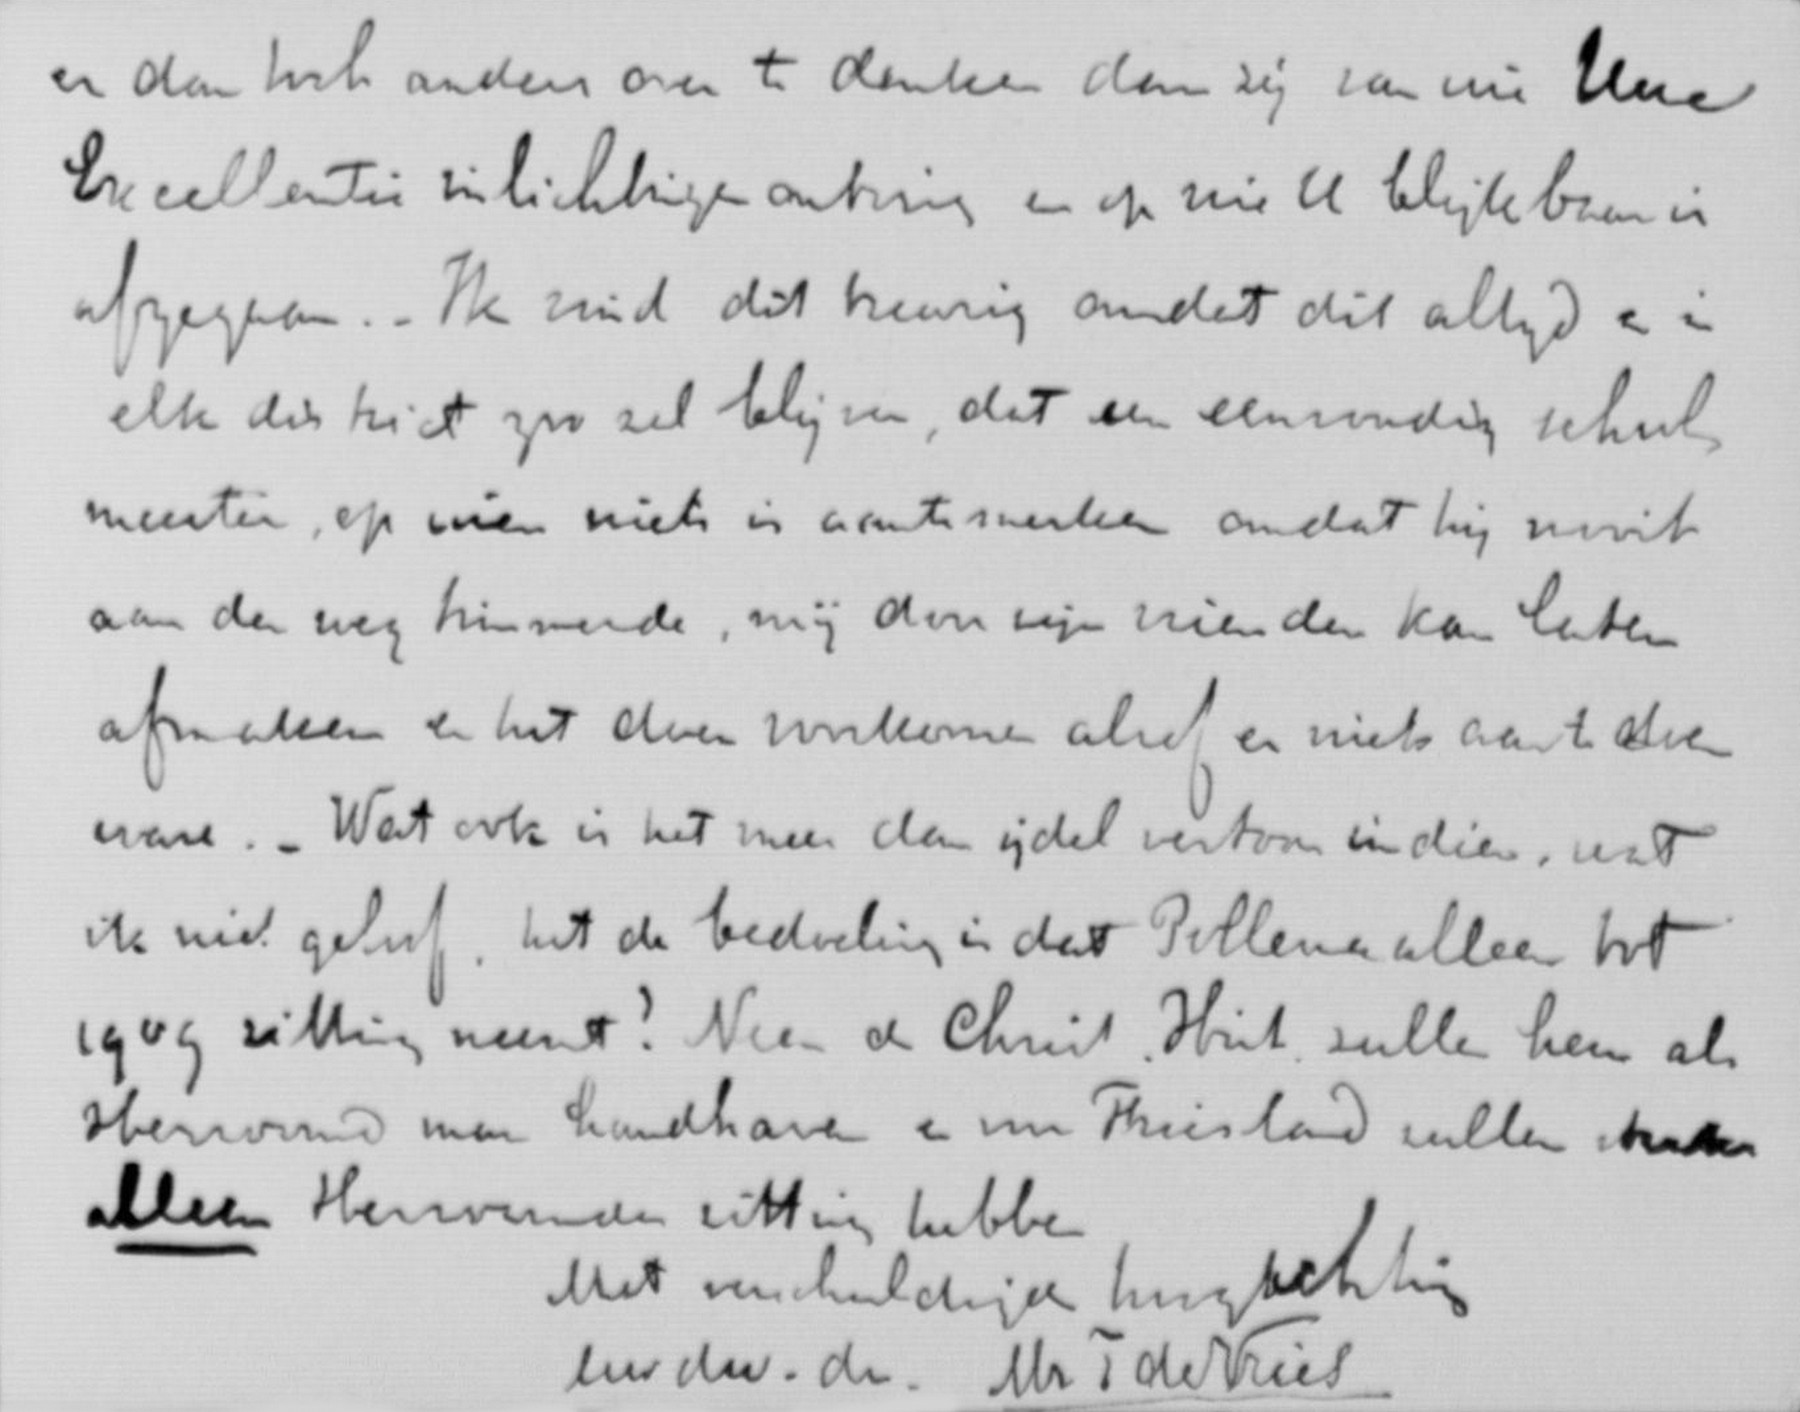 er dan toch anders over te denken dan zij van wie Uwe
Excellentie inlichtingen ontving en op wie U blijkbaar is
afgegaan. - Ik vind dit treurig omdat dit altijd en in
elk district zoo zal blijven, dat een eenvoudig school
meester, op wien niets is aantemerken omdat hij nooit
aan den weg timmerde, mij door zijn vrienden kan laten
afmaken en het doen voorkomen alsof er niets aan te doen
ware. - Wat ook is het meer dan ijdel vertoon indien, wat
ik niet geloof, het de bedoeling is dat Pollema alleen tot
1909 zitting neemt? Neen de Christ. Hist. zullen hem als
Hervormd man handhaven en in Friesland zullen
alleen Hervormden zitting hebben
Met verschuldigde hoogachting
uw dw. dr. Mr T de Vries